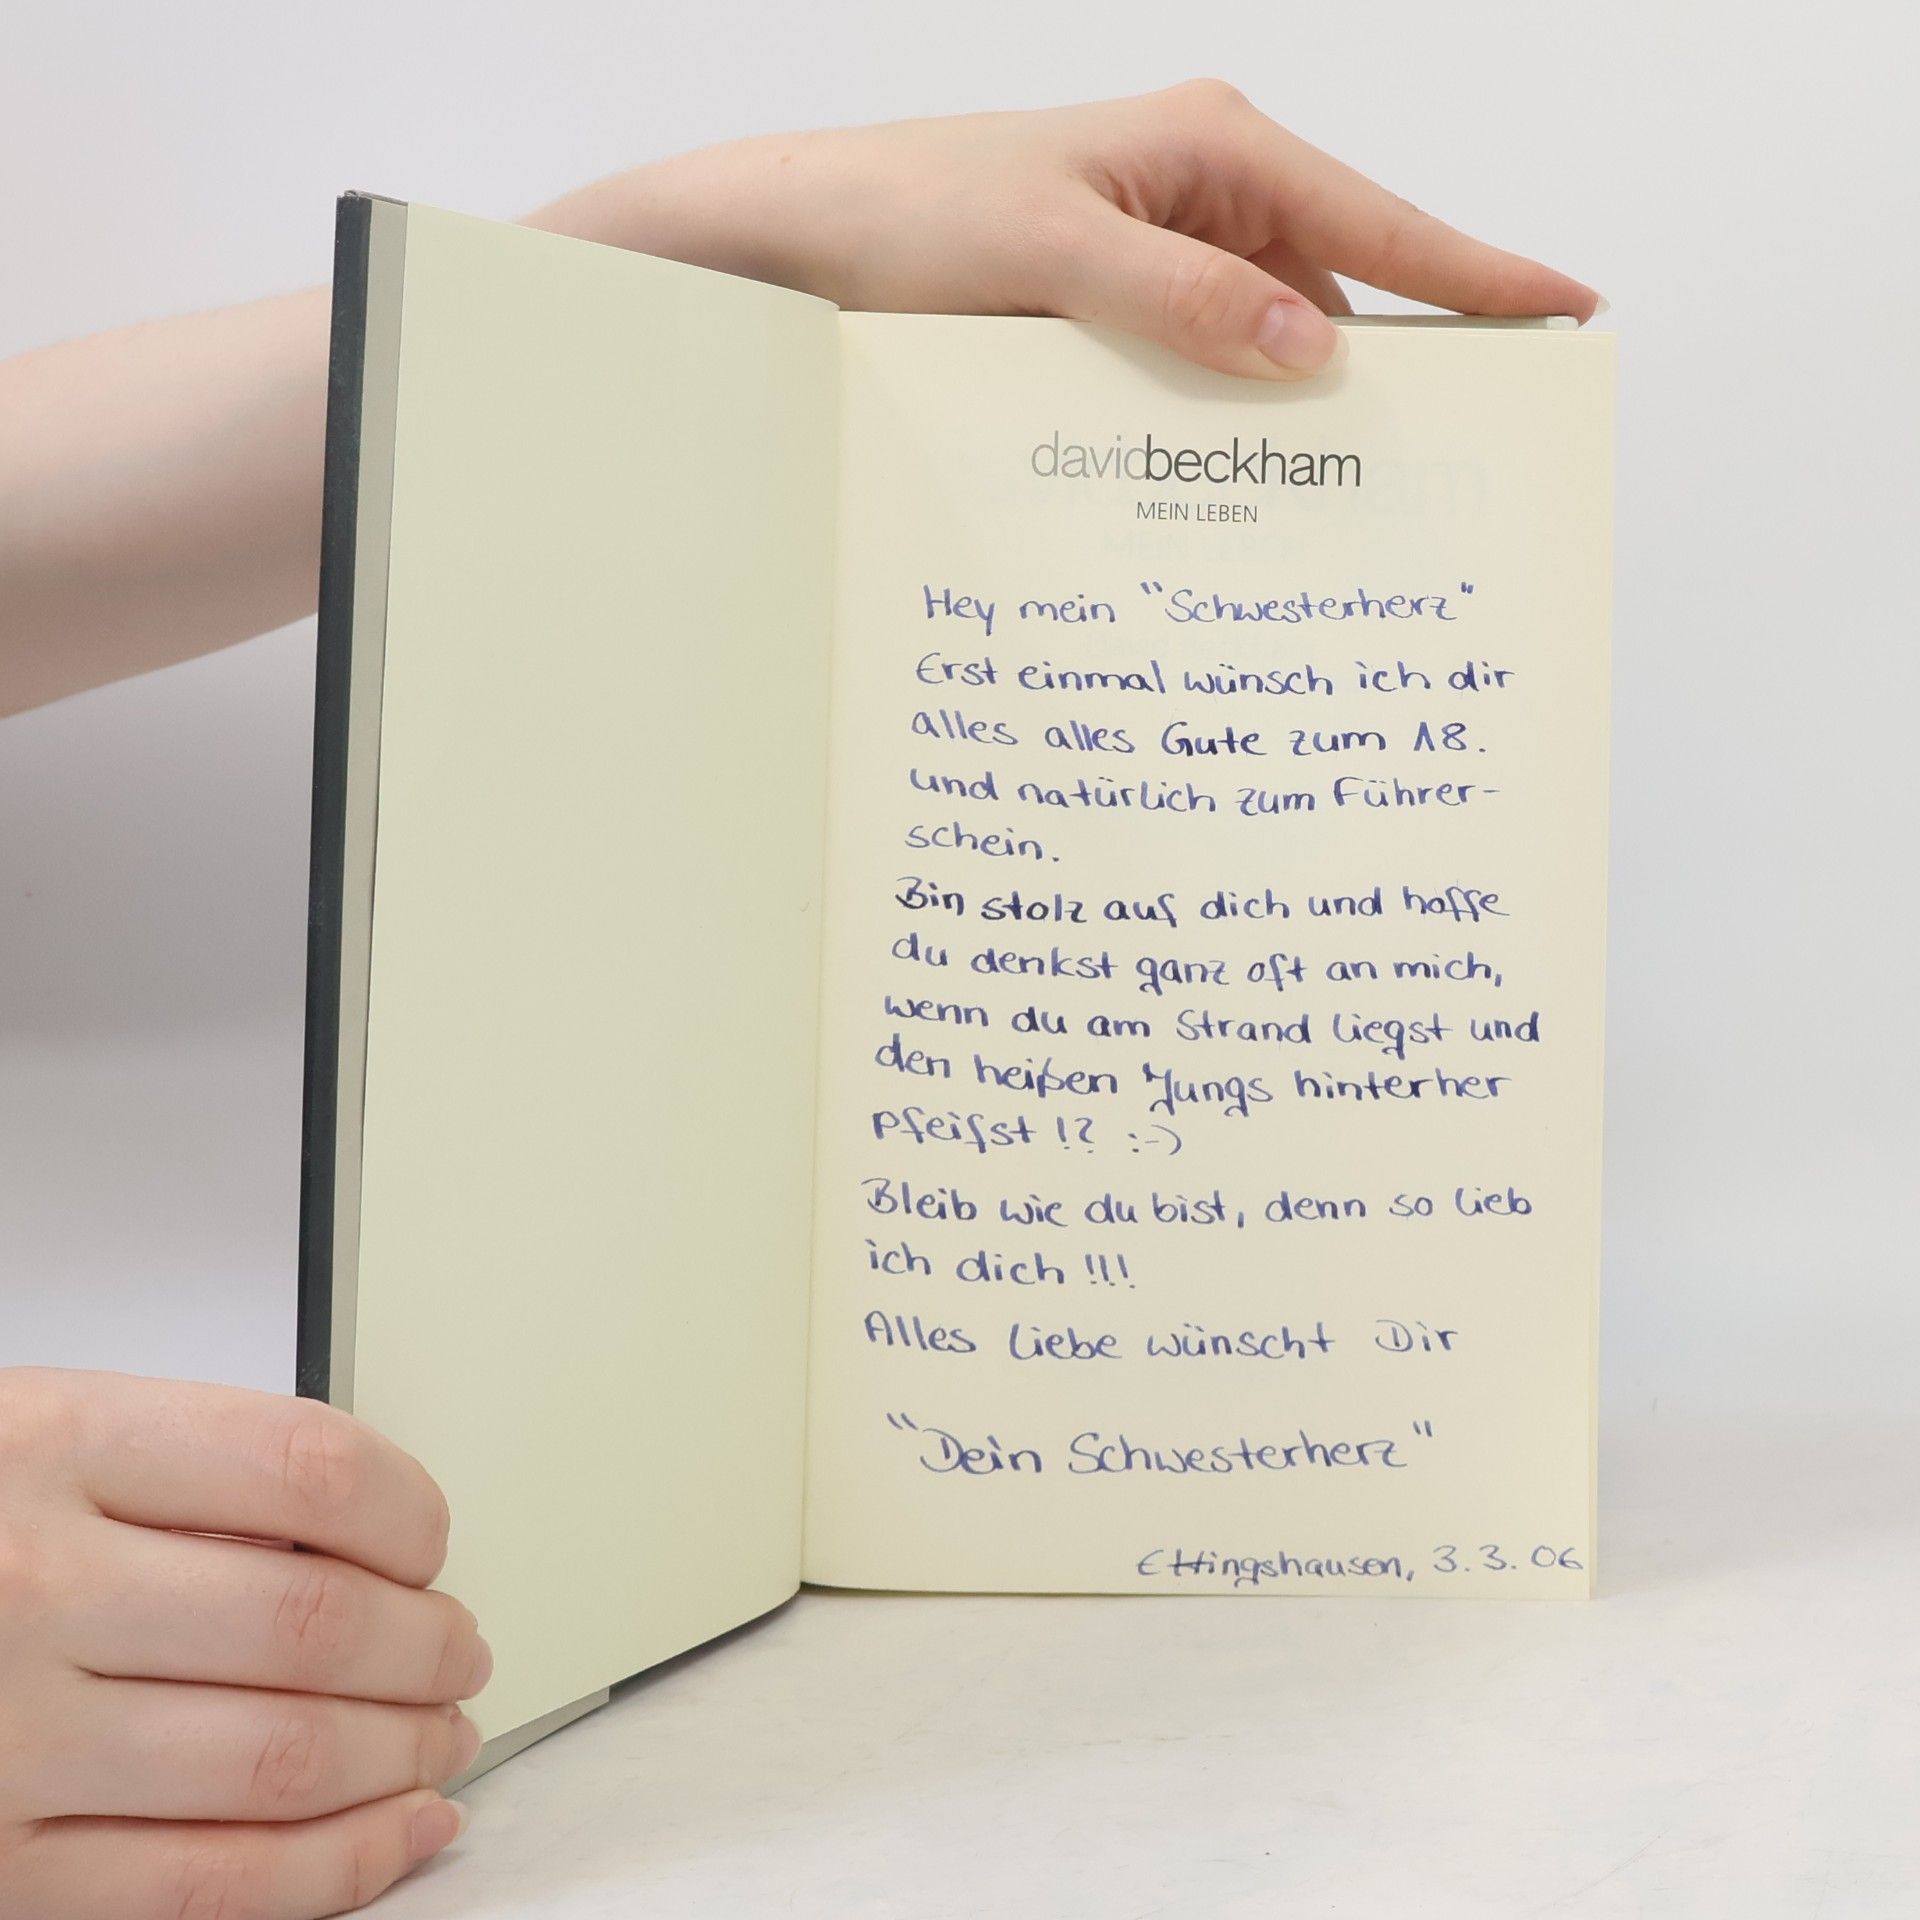 davidbeckham
MEIN LEBEN
Hey mein "Schwesterherz"
Erst einmal wünsch ich dir
alles alles Gute zum 18.
und natürlich zum Führer-
schein.
Bin stolz auf dich und hoffe
du denkst ganz oft an mich,
wenn du am Strand liegst und
den heißen Jungs hinterher
pfeifst!? :-)
Bleib wie du bist, denn so lieb
ich dich!!!
Alles Liebe wünscht Dir
"Dein Schwesterherz"
Ettingshausen, 3.3.06